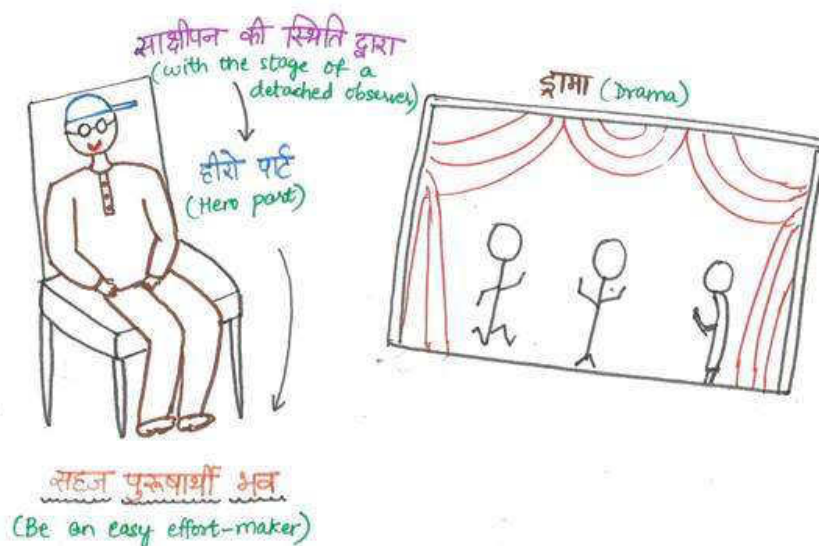 साक्षीपन की स्थिति द्वारा
(with the stage of a
detached observer)
हीरो पार्ट
(Hero part)
ड्रामा (Drama)
सहज पुरुषार्थी भव
(Be an easy effort-maker)